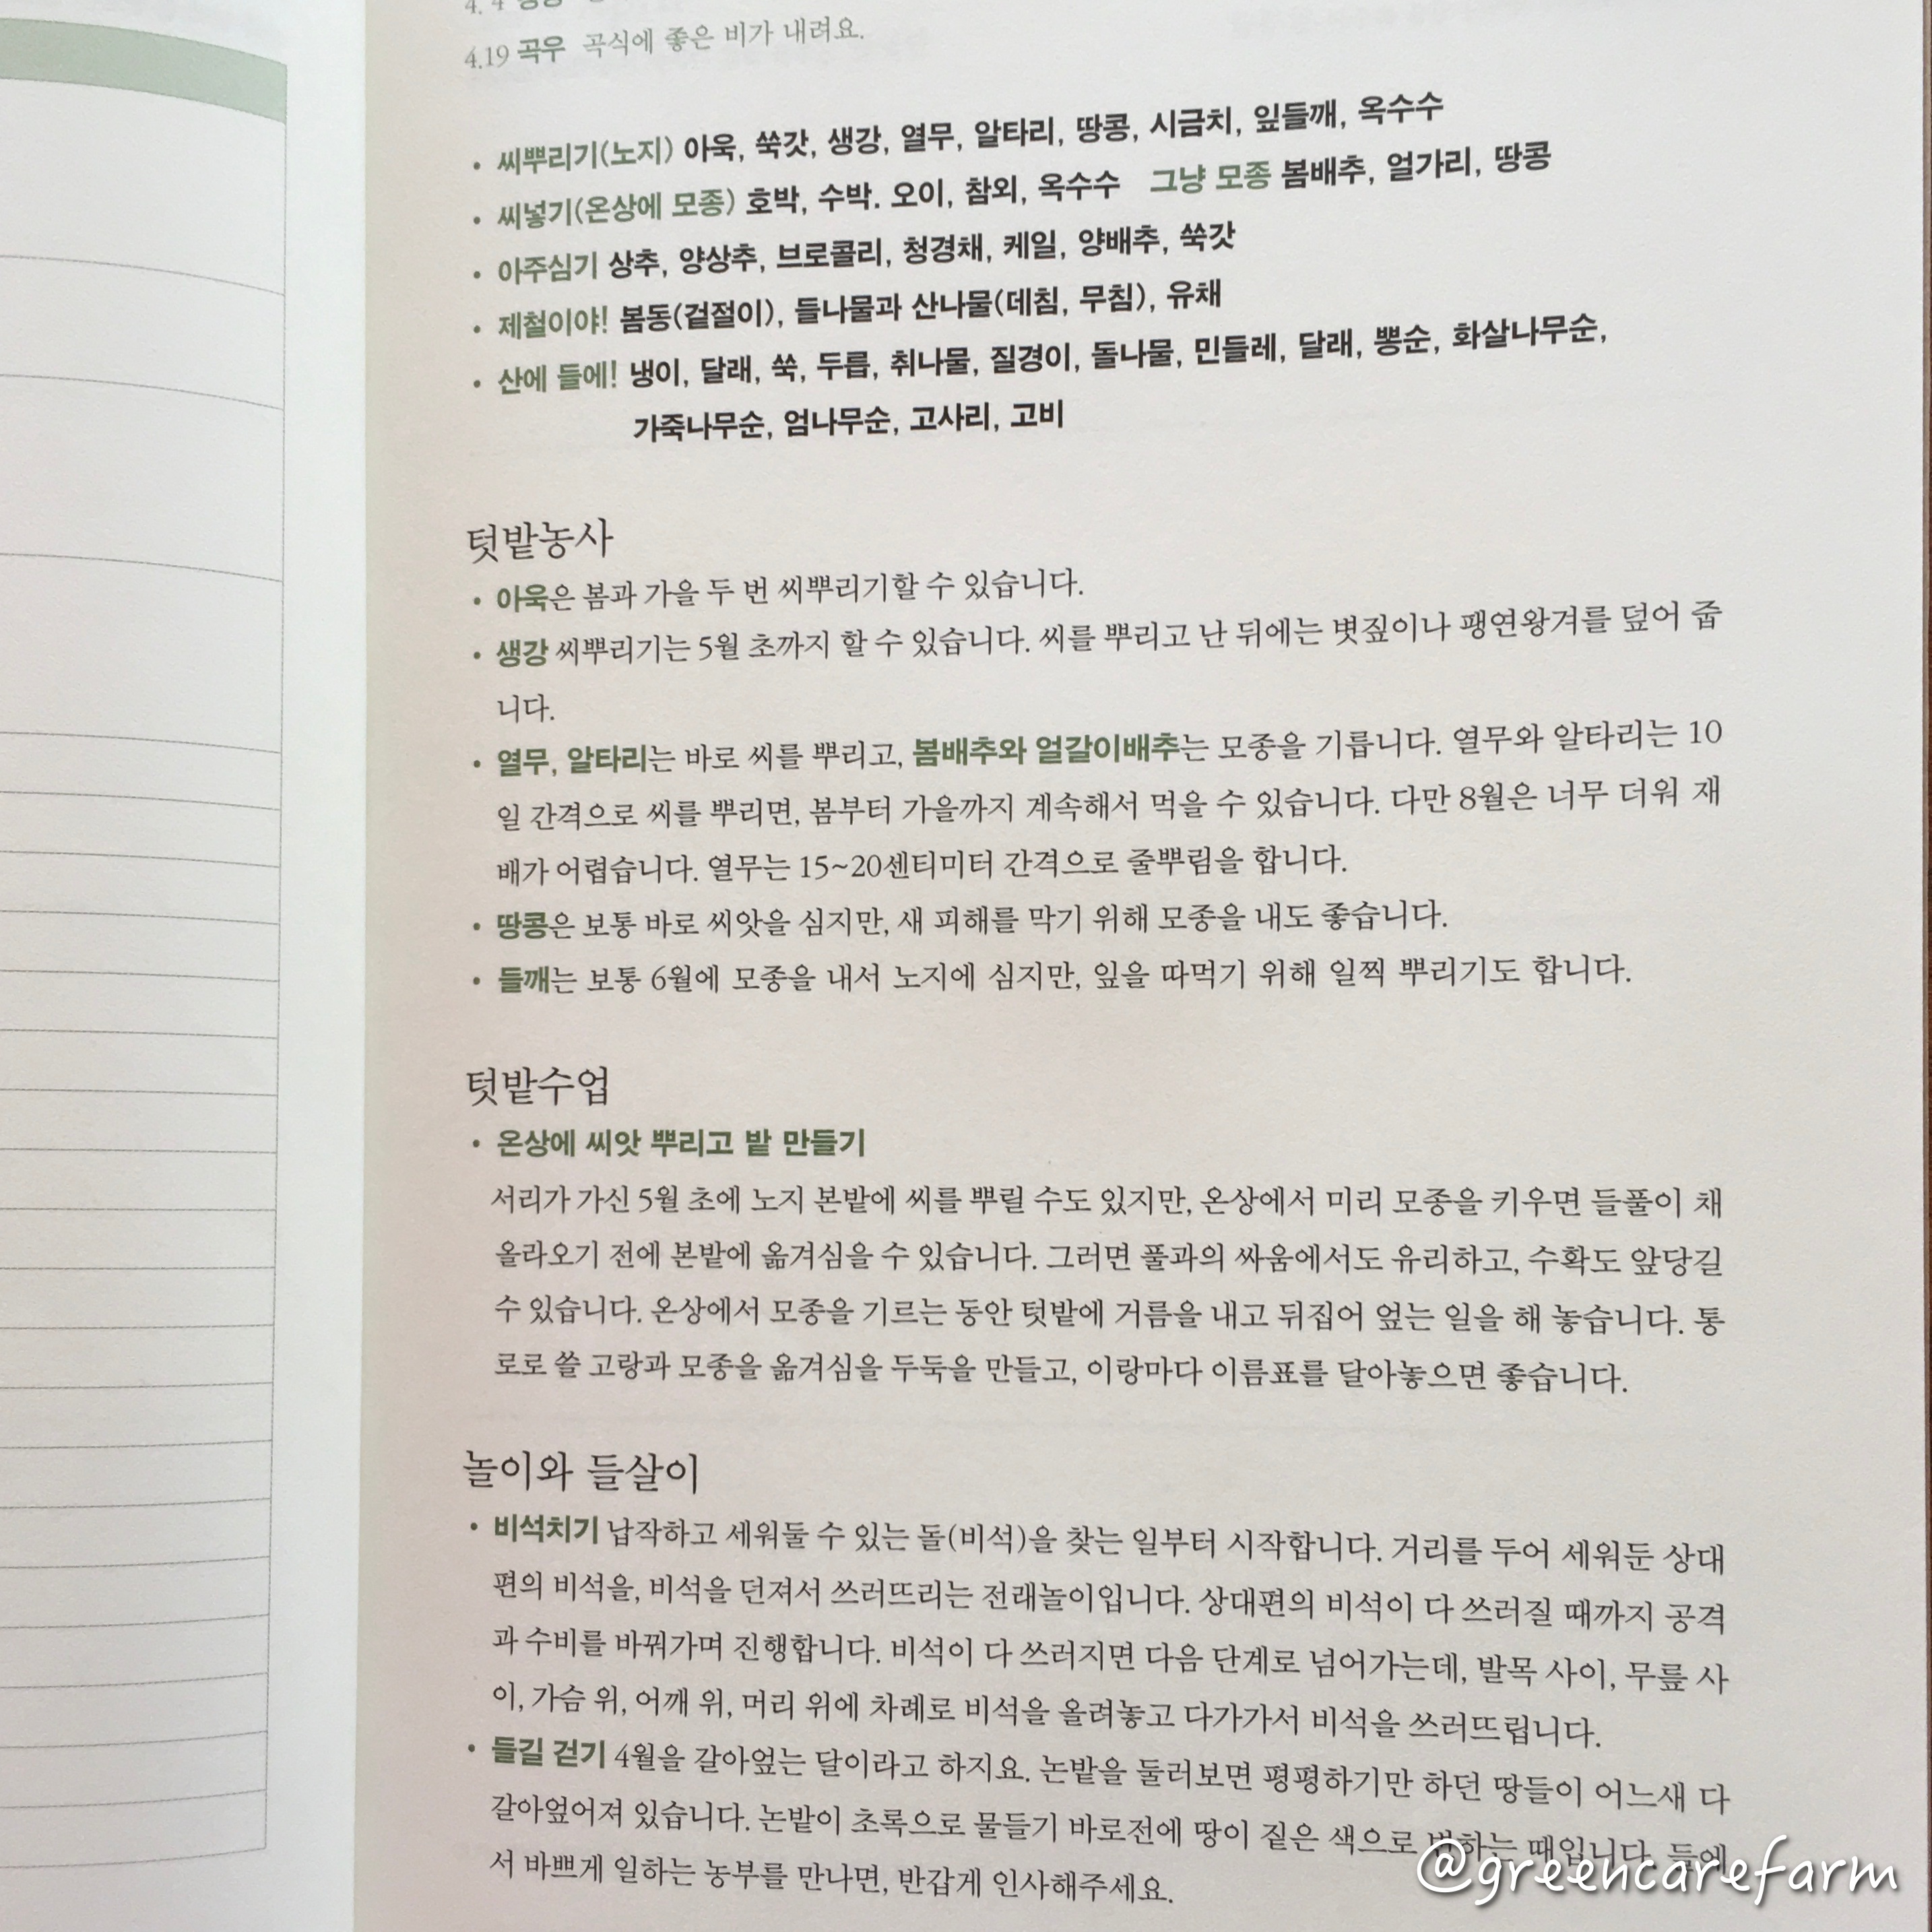 4. 4
4.19 곡우 곡식에 좋은 비가 내려요.
• 씨뿌리기(노지) 아욱, 쑥갓, 생강, 열무, 알타리, 땅콩, 시금치, 잎들깨, 옥수수
• 씨넣기(온상에 모종) 호박, 수박. 오이, 참외, 옥수수 그냥 모종 봄배추, 얼가리, 땅콩
• 아주심기 상추, 양상추, 브로콜리, 청경채, 케일, 양배추, 쑥갓
• 제철이야! 봄동(겉절이), 들나물과 산나물(데침, 무침), 유채
• 산에 들에! 냉이, 달래, 쑥, 두릅, 취나물, 질경이, 돌나물, 민들레, 달래, 뽕순, 화살나무순,
가죽나무순, 엄나무순, 고사리, 고비
텃밭농사
• 아욱은 봄과 가을 두 번 씨뿌리기할 수 있습니다.
• 생강 씨뿌리기는 5월 초까지 할 수 있습니다. 씨를 뿌리고 난 뒤에는 볏짚이나 팽연왕겨를 덮어 줍
니다.
• 열무, 알타리는 바로 씨를 뿌리고, 봄배추와 얼갈이배추는 모종을 기릅니다. 열무와 알타리는 10
일 간격으로 씨를 뿌리면, 봄부터 가을까지 계속해서 먹을 수 있습니다. 다만 8월은 너무 더워 재
배가 어렵습니다. 열무는 15~20센티미터 간격으로 줄뿌림을 합니다.
• 땅콩은 보통 바로 씨앗을 심지만, 새 피해를 막기 위해 모종을 내도 좋습니다.
• 들깨는 보통 6월에 모종을 내서 노지에 심지만, 잎을 따먹기 위해 일찍 뿌리기도 합니다.
텃밭수업
• 온상에 씨앗 뿌리고 밭 만들기
서리가 가신 5월 초에 노지 본밭에 씨를 뿌릴 수도 있지만, 온상에서 미리 모종을 키우면 들풀이 채
올라오기 전에 본밭에 옮겨심을 수 있습니다. 그러면 풀과의 싸움에서도 유리하고, 수확도 앞당길
수 있습니다. 온상에서 모종을 기르는 동안 텃밭에 거름을 내고 뒤집어 엎는 일을 해 놓습니다. 통
로로 쓸 고랑과 모종을 옮겨심을 두둑을 만들고, 이랑마다 이름표를 달아놓으면 좋습니다.
놀이와 들살이
• 비석치기 납작하고 세워둘 수 있는 돌(비석)을 찾는 일부터 시작합니다. 거리를 두어 세워둔 상대
편의 비석을, 비석을 던져서 쓰러뜨리는 전래놀이입니다. 상대편의 비석이 다 쓰러질 때까지 공격
과 수비를 바꿔가며 진행합니다. 비석이 다 쓰러지면 다음 단계로 넘어가는데, 발목 사이, 무릎 사
이, 가슴 위, 어깨 위, 머리 위에 차례로 비석을 올려놓고 다가가서 비석을 쓰러뜨립니다.
• 들길 걷기 4월을 갈아엎는 달이라고 하지요. 논밭을 둘러보면 평평하기만 하던 땅들이 어느새 다
갈아엎어져 있습니다. 논밭이 초록으로 물들기 바로전에 땅이 짙은 색으로 변하는 때입니다. 들에
서 바쁘게 일하는 농부를 만나면, 반갑게 인사해주세요.
@greencarefarm